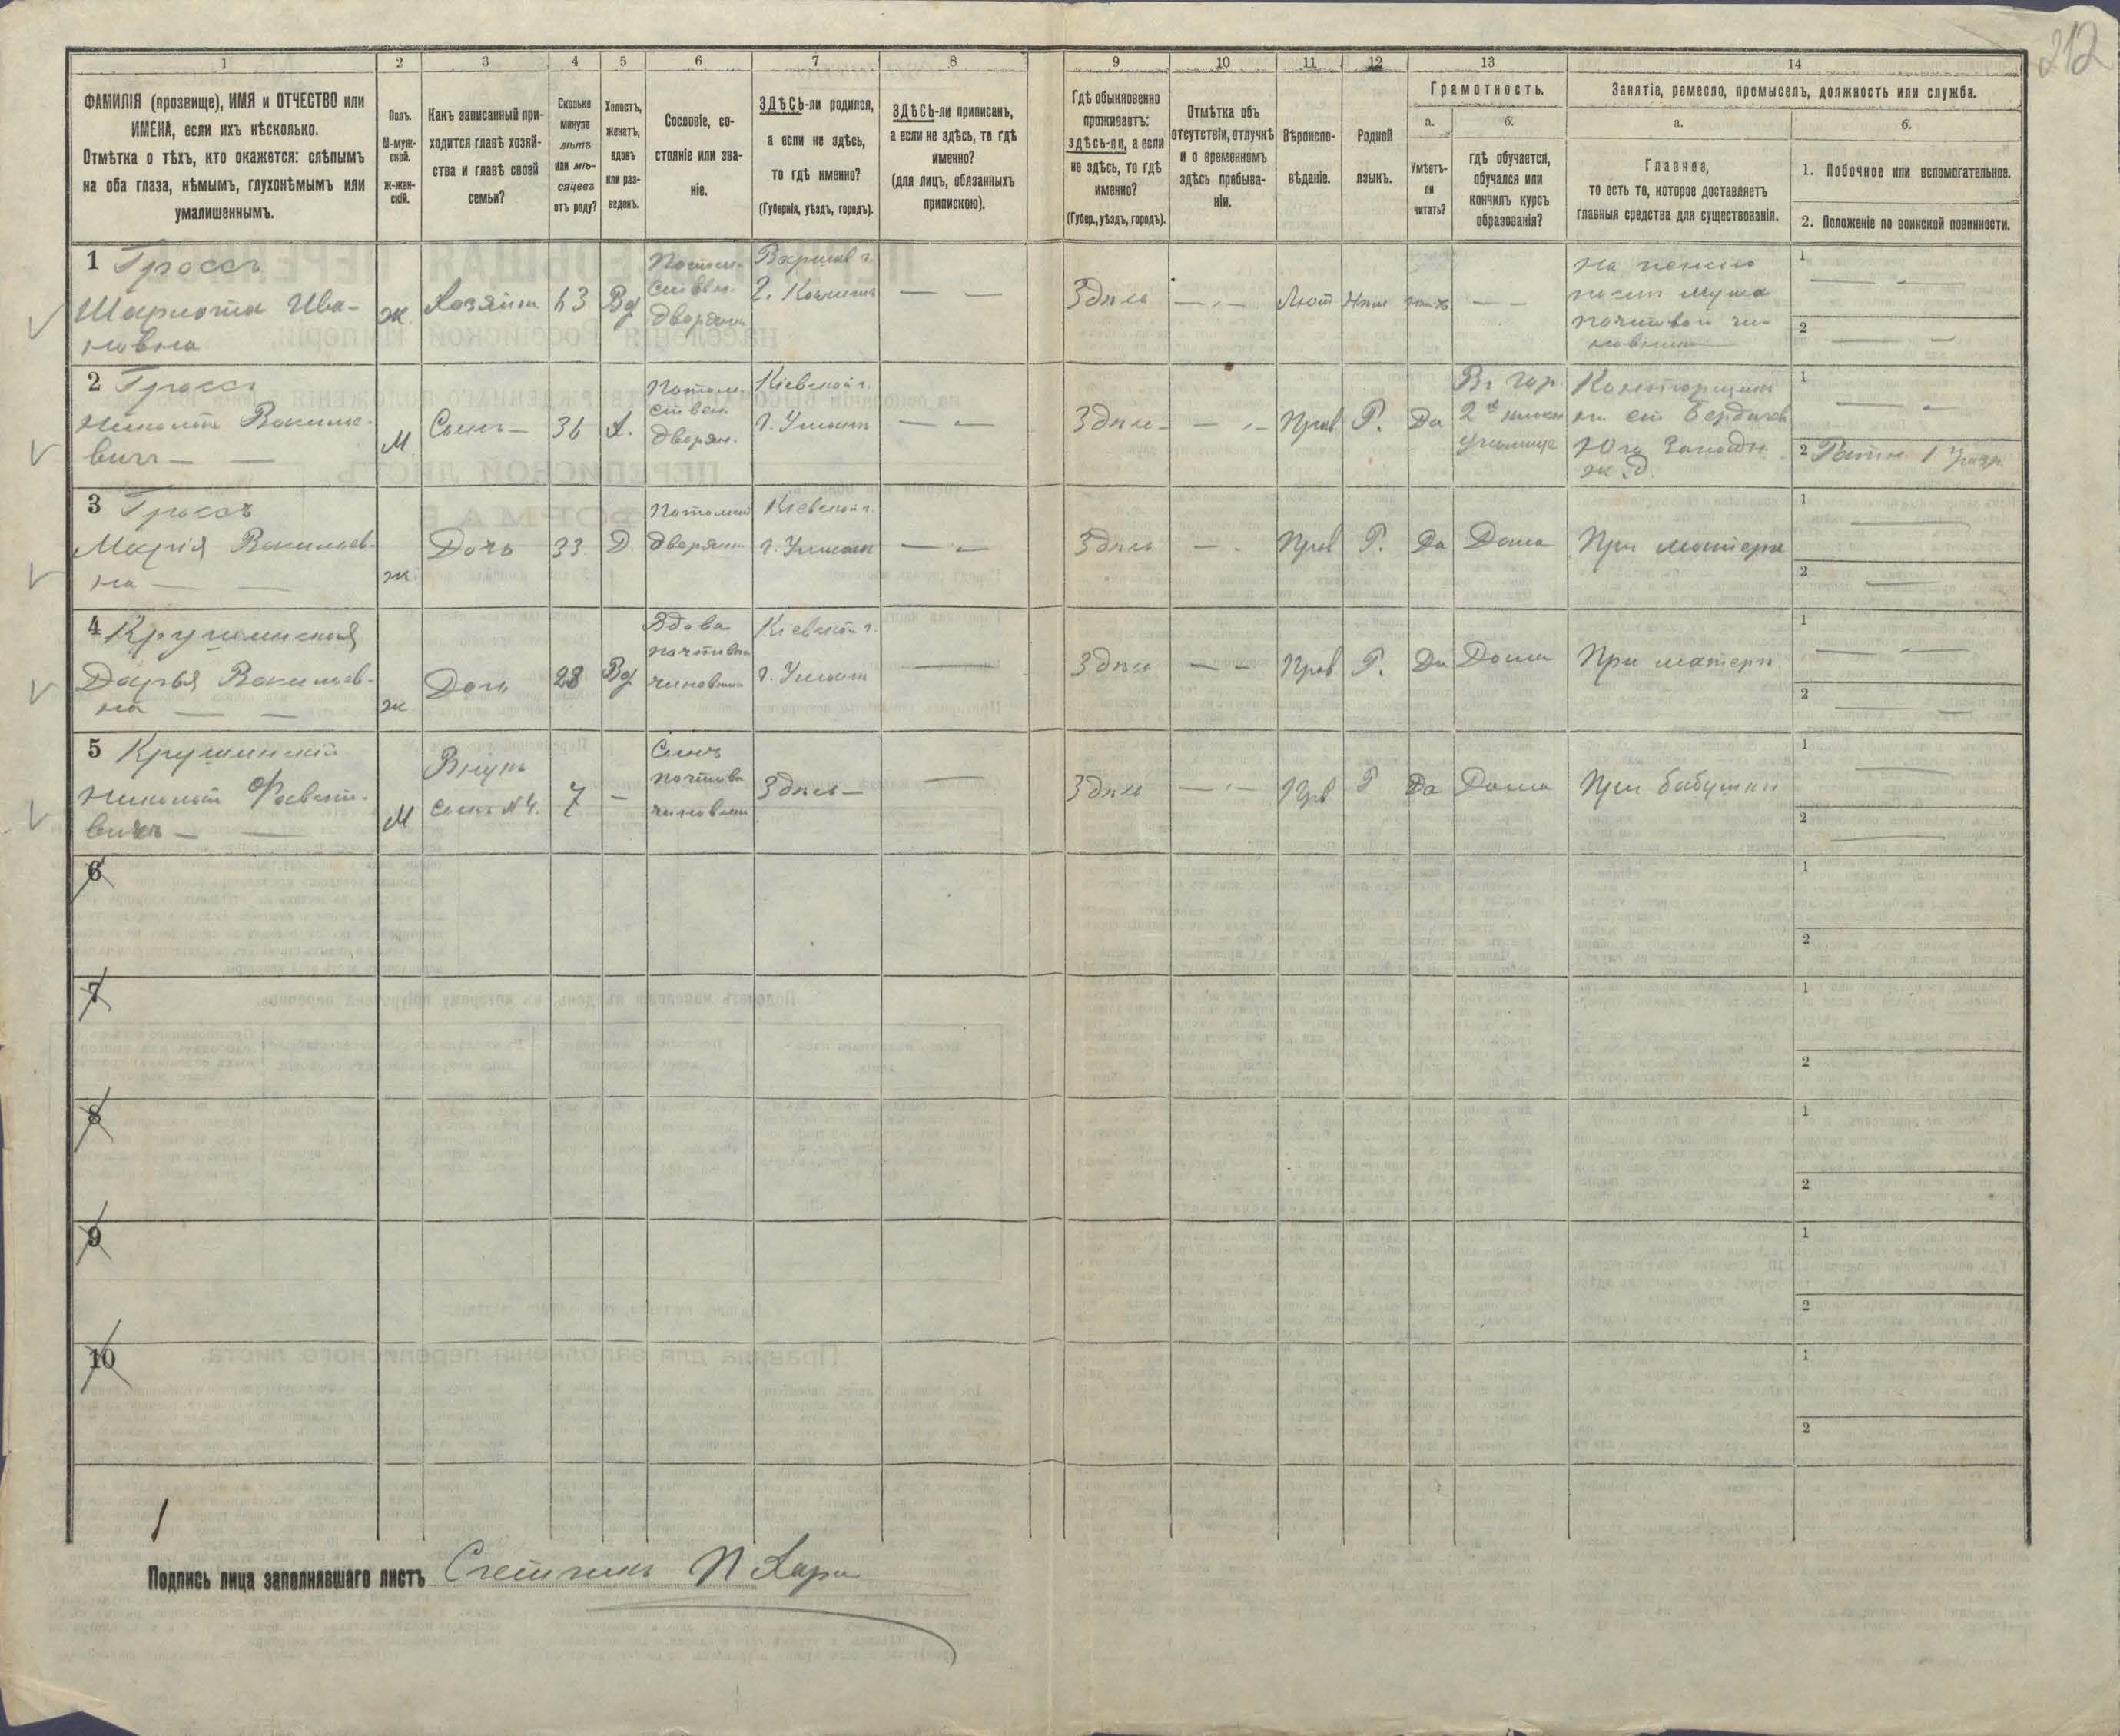 212
1
2
3
4
5
6
7
8
9
10
11
12
13
14
ФАМИЛІЯ (прозвище), ИМЯ и ОТЧЕСТВО или
ИМЕНА, если ихъ нѣсколько.
Отмѣтка о тѣхъ, кто окажется: слѣпымъ
на оба глаза, нѣмымъ, глухонѣмымъ или
умалишеннымъ.
Полъ.
М-муж-
ской.
ж-жен-
скій.
Какъ записанный при-
ходится главѣ хозяй-
ства и главѣ своей
семьи?
Сколько
минуло
лѣтъ
или мѣ-
сяцевъ
отъ роду?
Холостъ,
женатъ,
вдовъ
или раз-
веденъ.
Сословіе, со-
стояніе или зва-
ніе.
ЗДѢСЬ-ли родился,
а если не здѣсь,
то гдѣ именно?
(Губернія, уѣздъ, городъ).
ЗДѢСЬ-ли приписанъ,
а если не здѣсь, то гдѣ
именно?
(для лицъ, обязанныхъ
припискою).
Гдѣ обыкновенно
проживаетъ:
здѣсь-ли, а если
не здѣсь, то гдѣ
именно?
(Губер., уѣздъ, городъ).
Отмѣтка объ
отсутствіи, отлучкѣ
и о временномъ
здѣсь пребыва-
ніи.
Вѣроиспо-
вѣданіе.
Родной
языкъ.
Грамотность.
а.
Умѣетъ-
ли
читать?
б.
гдѣ обучается,
обучался или
кончилъ курсъ
образованія?
Занятіе, ремесло, промыселъ, должность или служба.
а.
Главное,
то есть то, которое доставляетъ
главныя средства для существованія.
б.
1. Побочное или вспомогательное.
2. Положеніе по воинской повинности.
1 Гроссъ
Шарлота Ива-
новна
ж
Хозяйка
63
Вд
Потом-
ствен.
дворян
Варшав г.
Здѣсь
Лют
Нѣм
1
2
2 Гроссъ
Николай Васильe-
вичъ
М
Сынъ
36
Х.
Потом-
ствен.
дворян.
Кіевской г.
г. Умань
Здѣсь
Прав
Р.
Да
Въ гор.
2
училище
Конторщикъ
Бердичев
Юго Западн.
ж. д.
1
2 Ратн. 1 разр.
3 Гроссъ
Марія Васильев-
на
ж
Дочь
33
Д
дворян
Кіевской г.
г. Умань
Здѣсь
Прав
Р.
Да
Дома
При матери
1
2
4 Крушинская
Дарья Васильев-
на
ж
Дочь
28
Вд
Вдова
почтов
чиновник
Кіевской г.
г. Умань
Здѣсь
Прав
Р.
Да
Дома
При матери
1
2
5 Крушинскій
Николай
вичъ
М
Внукъ
сынъ №4.
7
Сынъ
почтов
чиновник
Здѣсь
Прв
Р
Да
Дома
При бабушки
1
2
6
1
2
7
1
2
8
1
2
9
1
2
10
1
2
Подпись лица заполнявшаго листъ Счетчикъ П